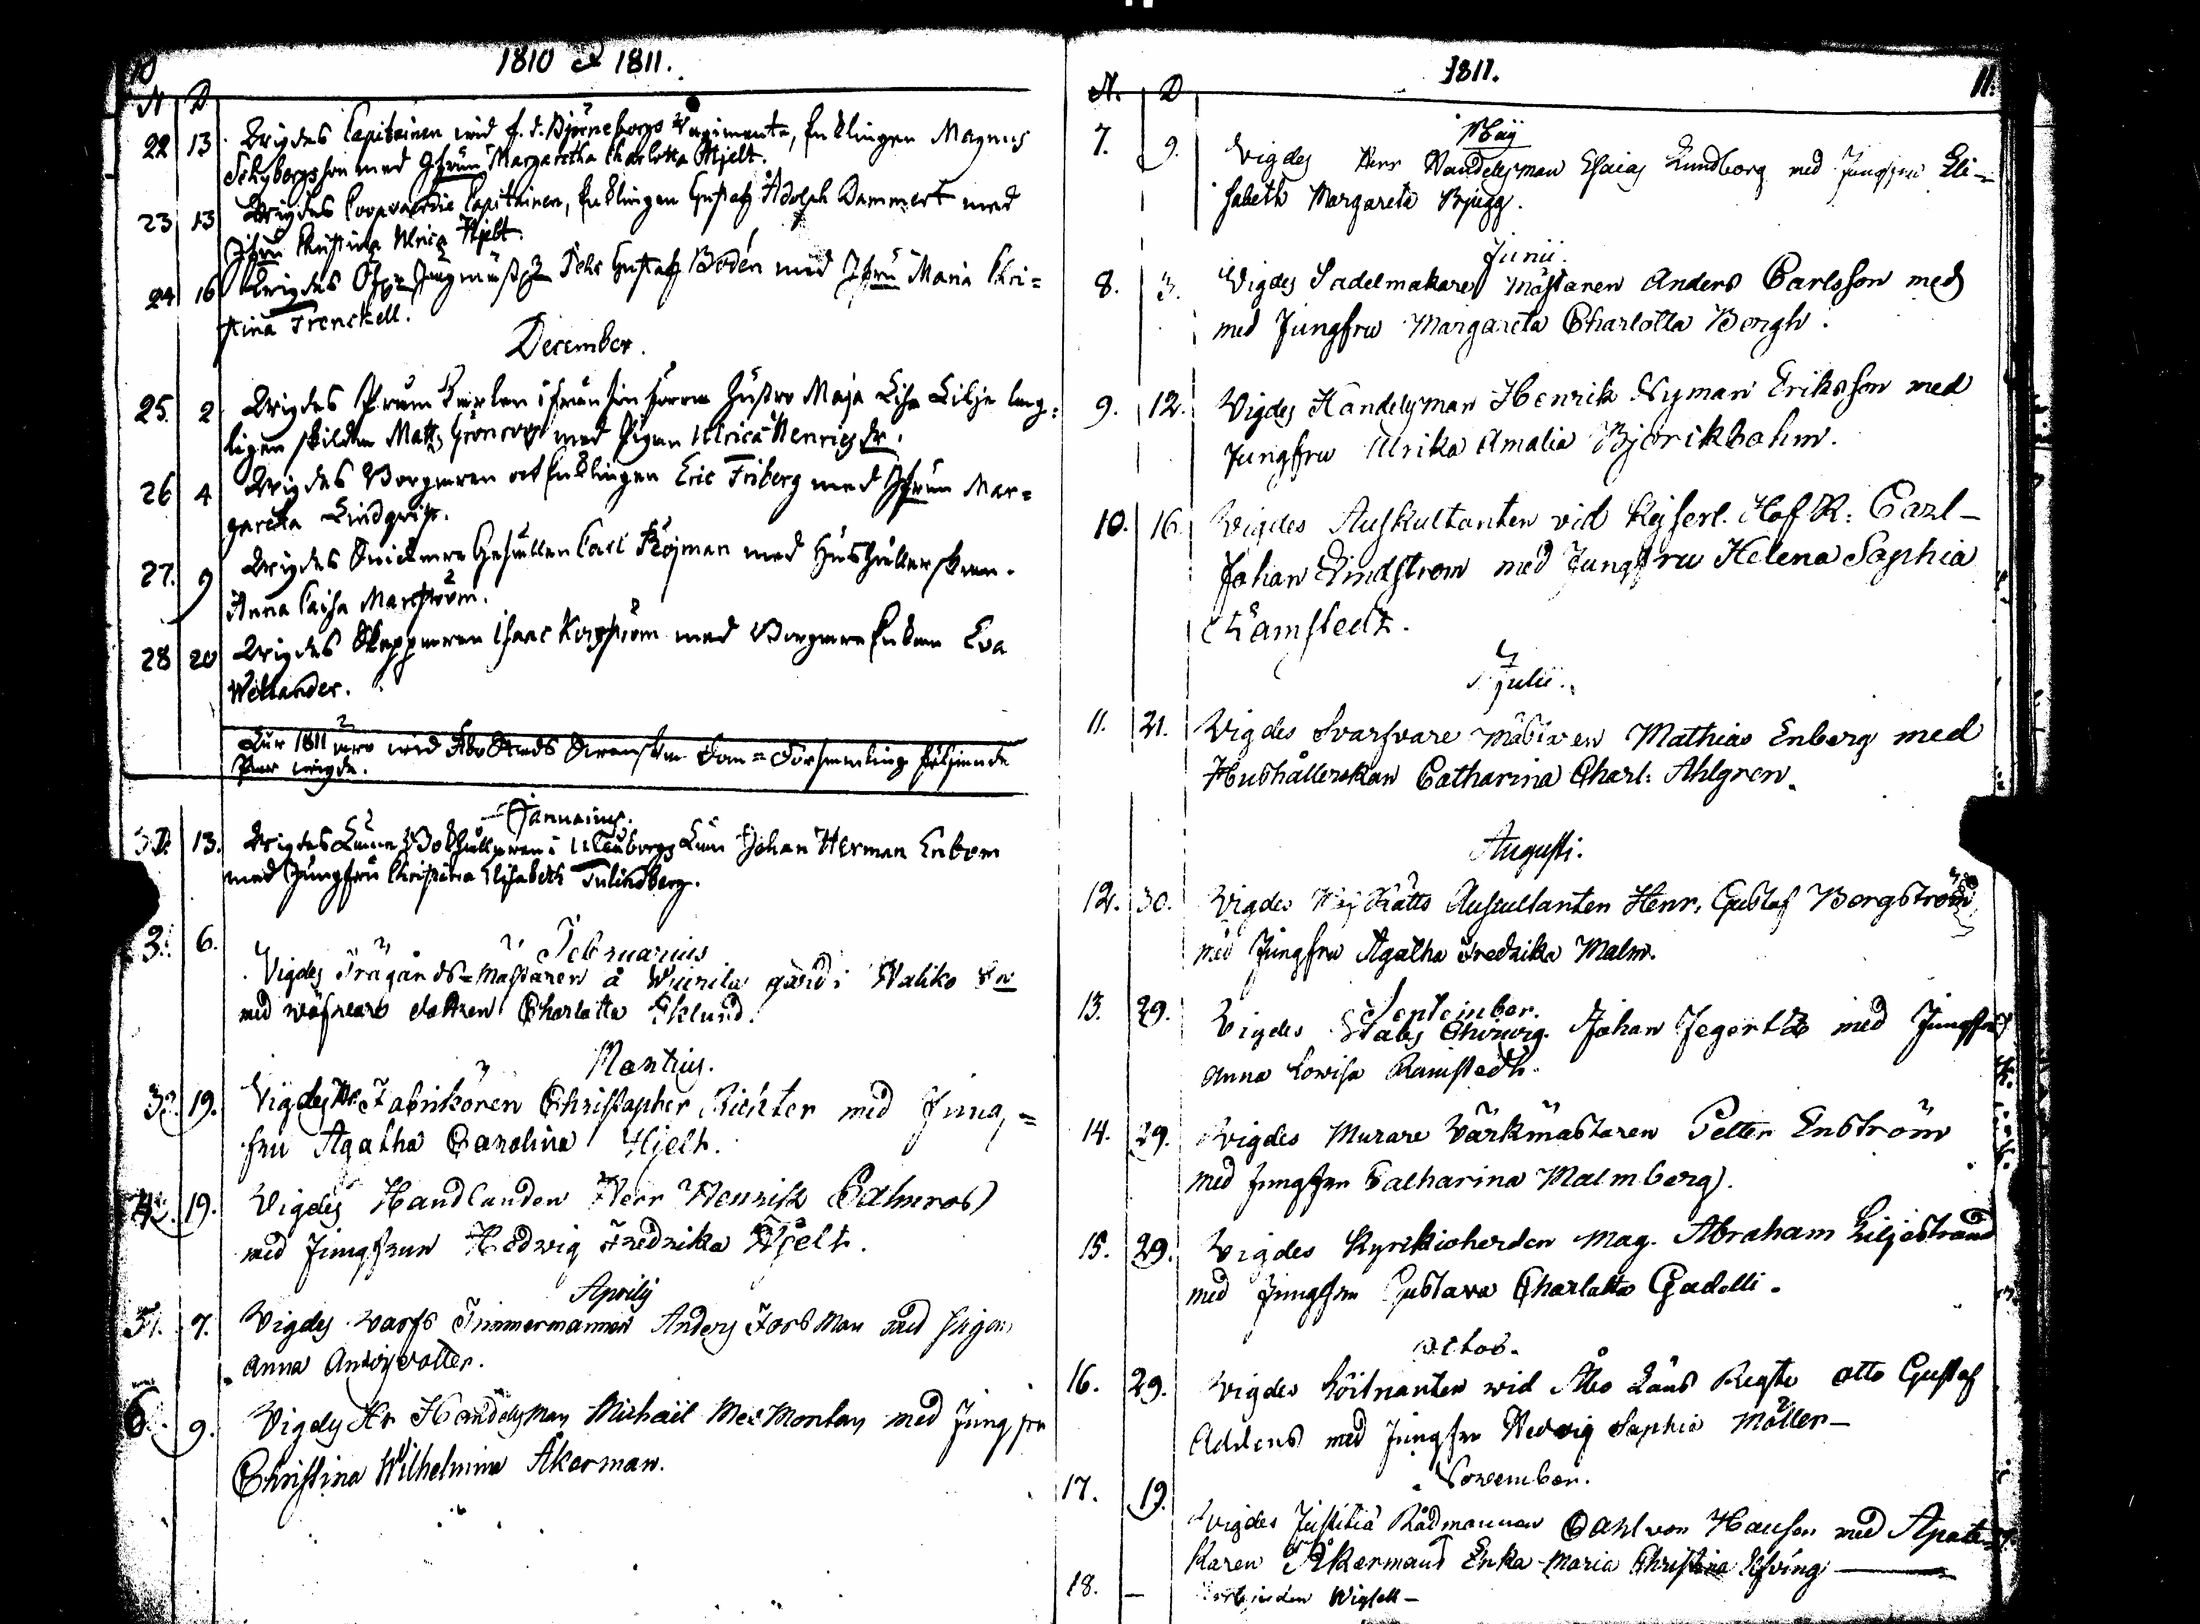 10
1810 & 1811.
N D
22 13 Wigdes Capitainen wid f. d. Björneborgs Regimente, Enklingen Magnus
Schybergsson med Jfrun Margaretha Charlotta Hjelt.
23 13 Wigdes Coopvaerdie Capitainen, Enklingen Gustaf Adolph Dammert med
Jfrun Christina Ulrica Hjelt.
24 16 Wigdes Gustaf Bodén med Jfru Maria Chri=
stina Frenckell.
December.
25 2 Wigdes ifrån sin förra Hustru Maja Lisa Lilja lag=
ligen skilde Matts Grönroos med Pigan Ulrica Henrics dr.
26 4 Wigdes Borgaren och Enklingen Eric Friberg med Jfrun Mar=
garetha Lindqvist.
27. 9 Wigdes Snickare Gesällen Carl Röjman med Hushållerskan
Anna Caisa Marström.
28 20 Wigdes Skepparen Isaac Korsström med Borgare Enkan Eva
Wellander.
År 1811 wid Åbo Stads Swenska Dom=Församling följande
Par wigde.
Januarius.
13. Wigdes Läns Bokhållaren i Uleåborgs Län Johan Herman Enbom
med Jungfru Christina Elisabeth Tulindberg.
Februarius
2. 6. Vigdes Trägårds=Mästaren å Wiurila gård i Haliko Sn
med wäfvare dottren Charlotta Eklund.
Martius.
3. 19. Vigdes Hr Fabrikören Christopher Richter med Jung=
fru Agatha Carolina Hjelt.
4. 19. Vigdes Handlanden Herr Henrik Calmros
med Jungfrun Hedvig Fredrika Hjelt.
Aprilij
5. 7. Vigdes varfs Timmermannen Anders Forsman med pigan
Anna Andersdotter.
6. 9. Vigdes Hr Handelsman Michail Mes Montan med Jungfru
Christina Wilhelmina Åkerman.
1811.
11.
N. D
Maij
7. 9. Vigdes Herr Handelsman Esaias Lundborg med Jungfru Eli=
sabeth Margareta Bjugg.
Junii.
8. 3. Vigdes Sadelmakare mästaren Anders Carlsson med
med Jungfru Margareta Charlotta Bergh.
9. 12. Vigdes Handelsman Henrik Nyman Eriksson med
Jungfru Ulrika Amalia Björkbohm.
10. 16. Vigdes Auskultanten vid Kejserl. Hof R: Carl
Johan Lindström med Jungfru Helena Sophia
Ramstedt.
Julii.
11. 21. Vigdes Svarfvare mästaren Mathias Enberg med
Hushållerskan Catharina Charl: Ahlgren.
Augusti.
12. 30. Vigdes Rätts Auscultanten Henr. Gustaf Bergström
med Jungfru Agatha Fredrika Malm.
September.
13. 29. Vigdes Stabs Chirurg. Johan Jegertz med Jungfru
Anna Lovisa Ramstedt.
14. 29. Vigdes Murare Värkmästaren Petter Enström
med Jungfru Catharina Malmberg.
15. 29. Vigdes Kyrkioherden Mag. Abraham Liljestrand
med Jungfru Gustava Charlotta Gadolli.
Octob.
16. 29. Vigdes Löitnanten wid Åbo Läns Regte Otto Gustaf
Addens med Jungfru Hedvig Sophia Möller
November.
17. 19. Vigdes Justitiæ Rådmannen Carl von Hausen med Apote=
karen Åkermans Enka Maria Christina Elfving
18. — Wigsell